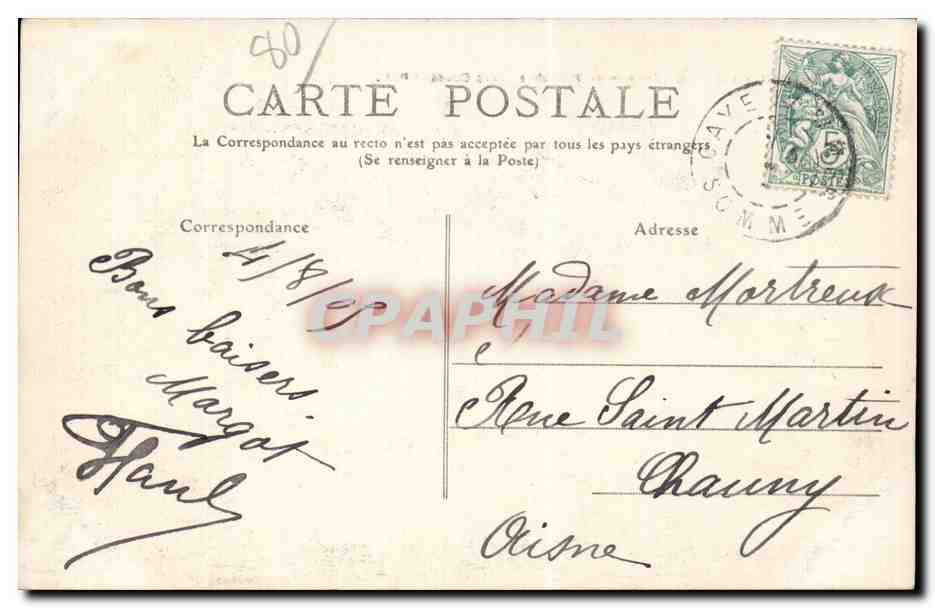 80
CARTE POSTALE
La Correspondance au recto n'est pas acceptée par tous les pays étrangers
(Se renseigner à la Poste)
CAYE
SOMME
5
POSTE
Correspondance
Adresse
Bons baisers.
Margot
Madame Mortreux
Rue Saint Martin
Chauny
Aisne
CPAPHIL